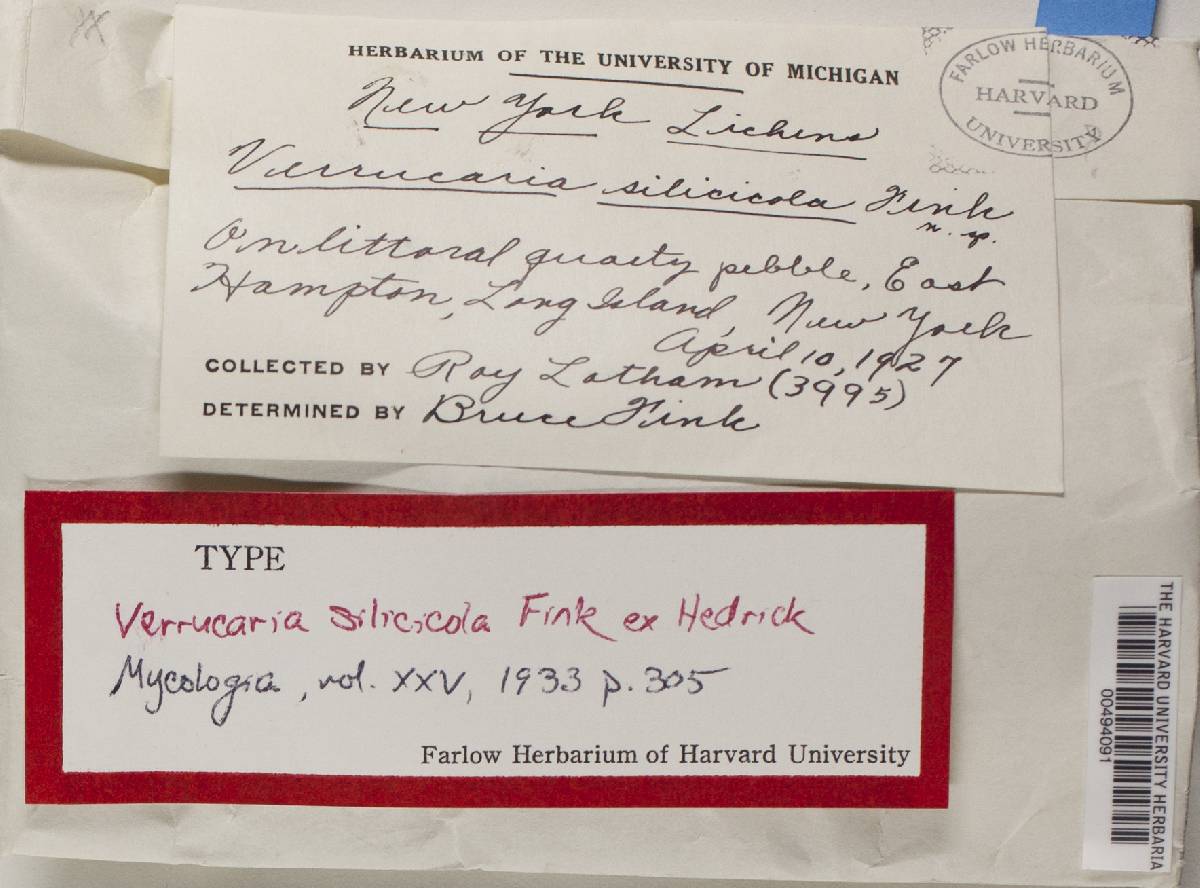 HERBARIUM OF THE UNIVERSITY OF MICHIGAN
New York Lichens
Verrucaria silicicola Fink
n. sp.
On littoral quartz pebble, East
Hampton, Long Island, New York
April 10, 1927
COLLECTED BY Roy Latham (3995)
DETERMINED BY Bruce Fink
FARLOW HERBARIUM
HARVARD
UNIVERSITY
TYPE
Verrucaria silicicola Fink ex Hedrick
Mycologia, vol. XXV, 1933 p. 305
Farlow Herbarium of Harvard University
THE HARVARD UNIVERSITY HERBARIA
00494091